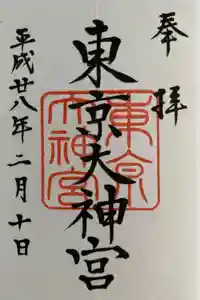 奉拝
東京大神宮
東京大神宮
平成廿八年二月十日